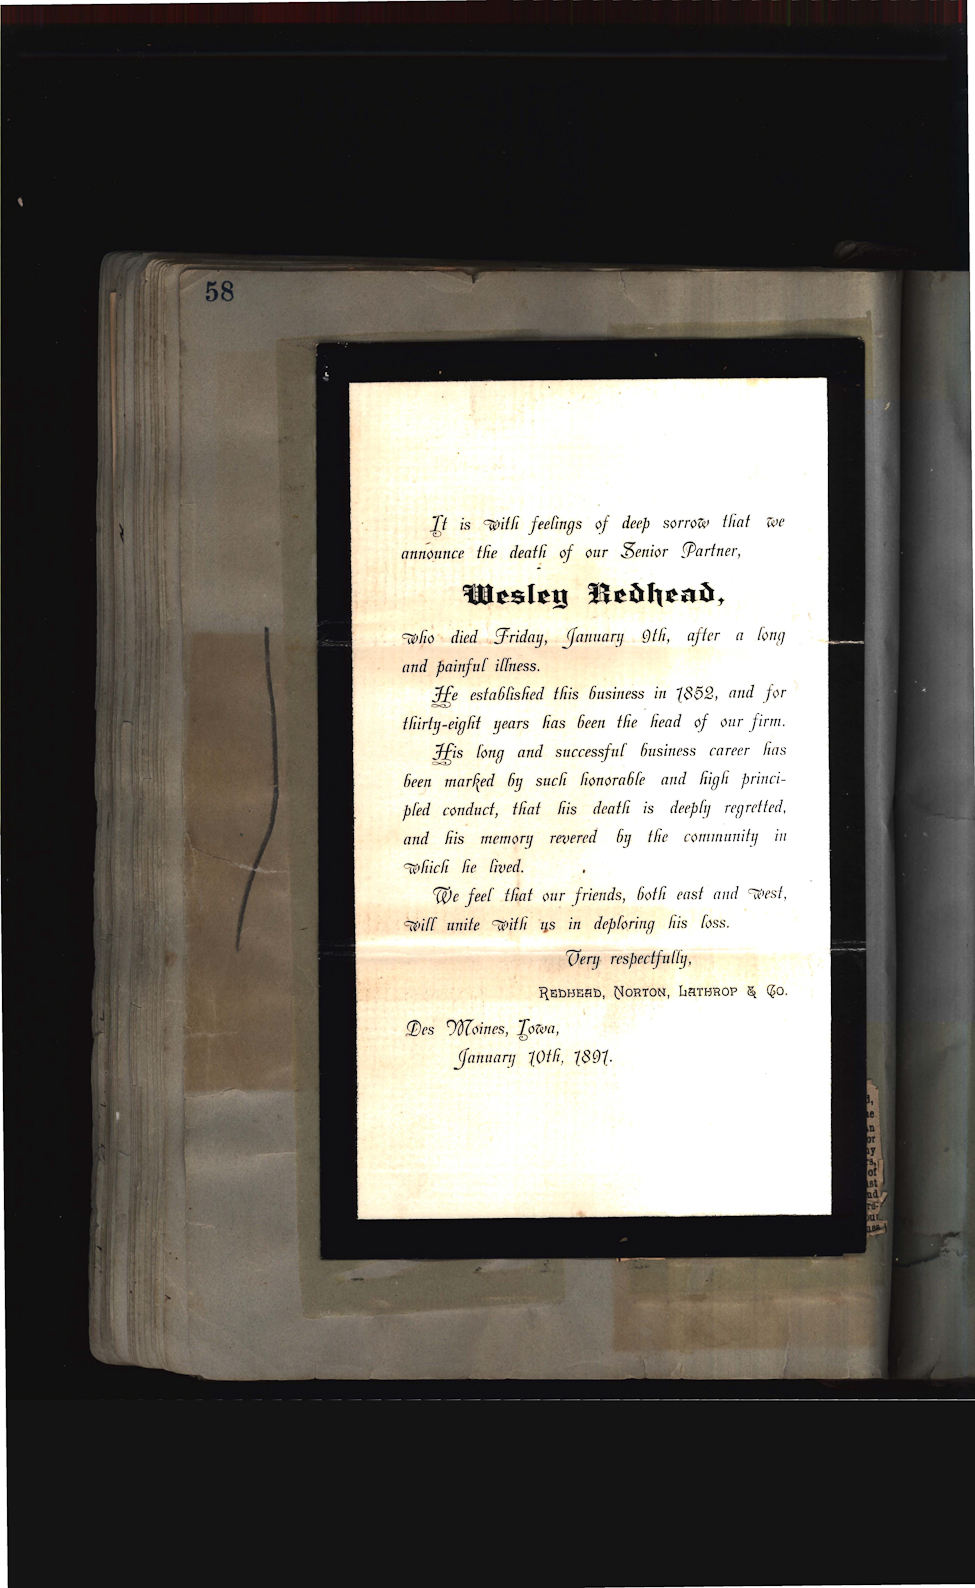 58
It is with feelings of deep sorrow that we
announce the death of our Senior Partner,
Wesley Redhead,
who died Friday, January 9th, after a long
and painful illness.
He established this business in 1852, and for
thirty-eight years has been the head of our firm.
His long and successful business career has
been marked by such honorable and high princi-
pled conduct, that his death is deeply regretted,
and his memory revered by the community in
which he lived.
We feel that our friends, both east and west,
will unite with us in deploring his loss.
Very respectfully,
REDHEAD, NORTON, LATHROP & Co.
Des Moines, Iowa,
January 10th, 1891.